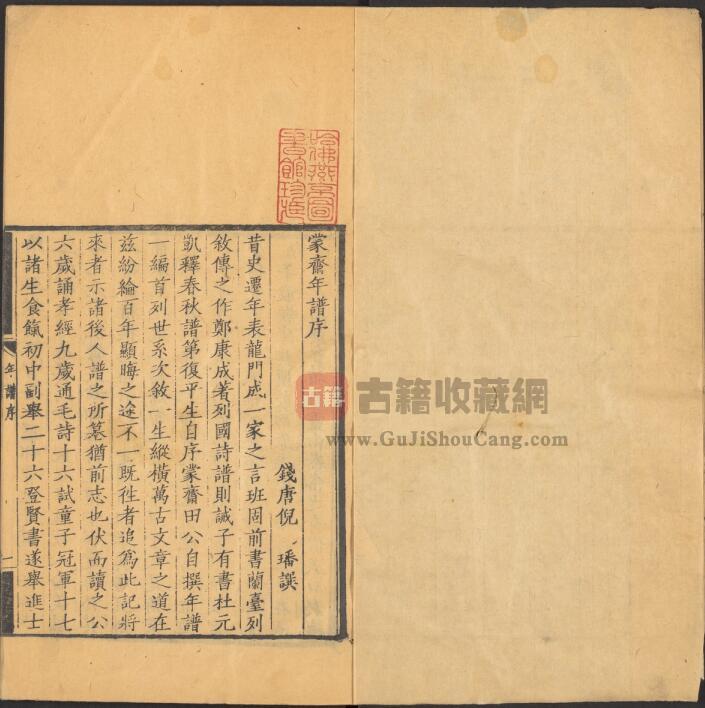 蒙齋年譜序
錢唐倪 璠譔
昔史遷年表龍門成一家之言班固前書蘭臺列
敘傳之作鄭康成著列國詩譜則誡子有書杜元
凱釋春秋譜第復平生自序蒙齋田公自撰年譜
一編首列世系次敘一生縱橫萬古文章之道在
茲紛綸百年顯晦之途不一既徃者追爲此記將
來者示諸後人譜之所纂猶前志也伏而讀之公
六歲誦孝經九歲通毛詩十六試童子冠軍十七
以諸生食餼初中副舉二十六登賢書遂舉進士
年譜序
一
哈佛燕京圖書館珍藏
古籍 古籍收藏網
www.GuJiShouCang.com